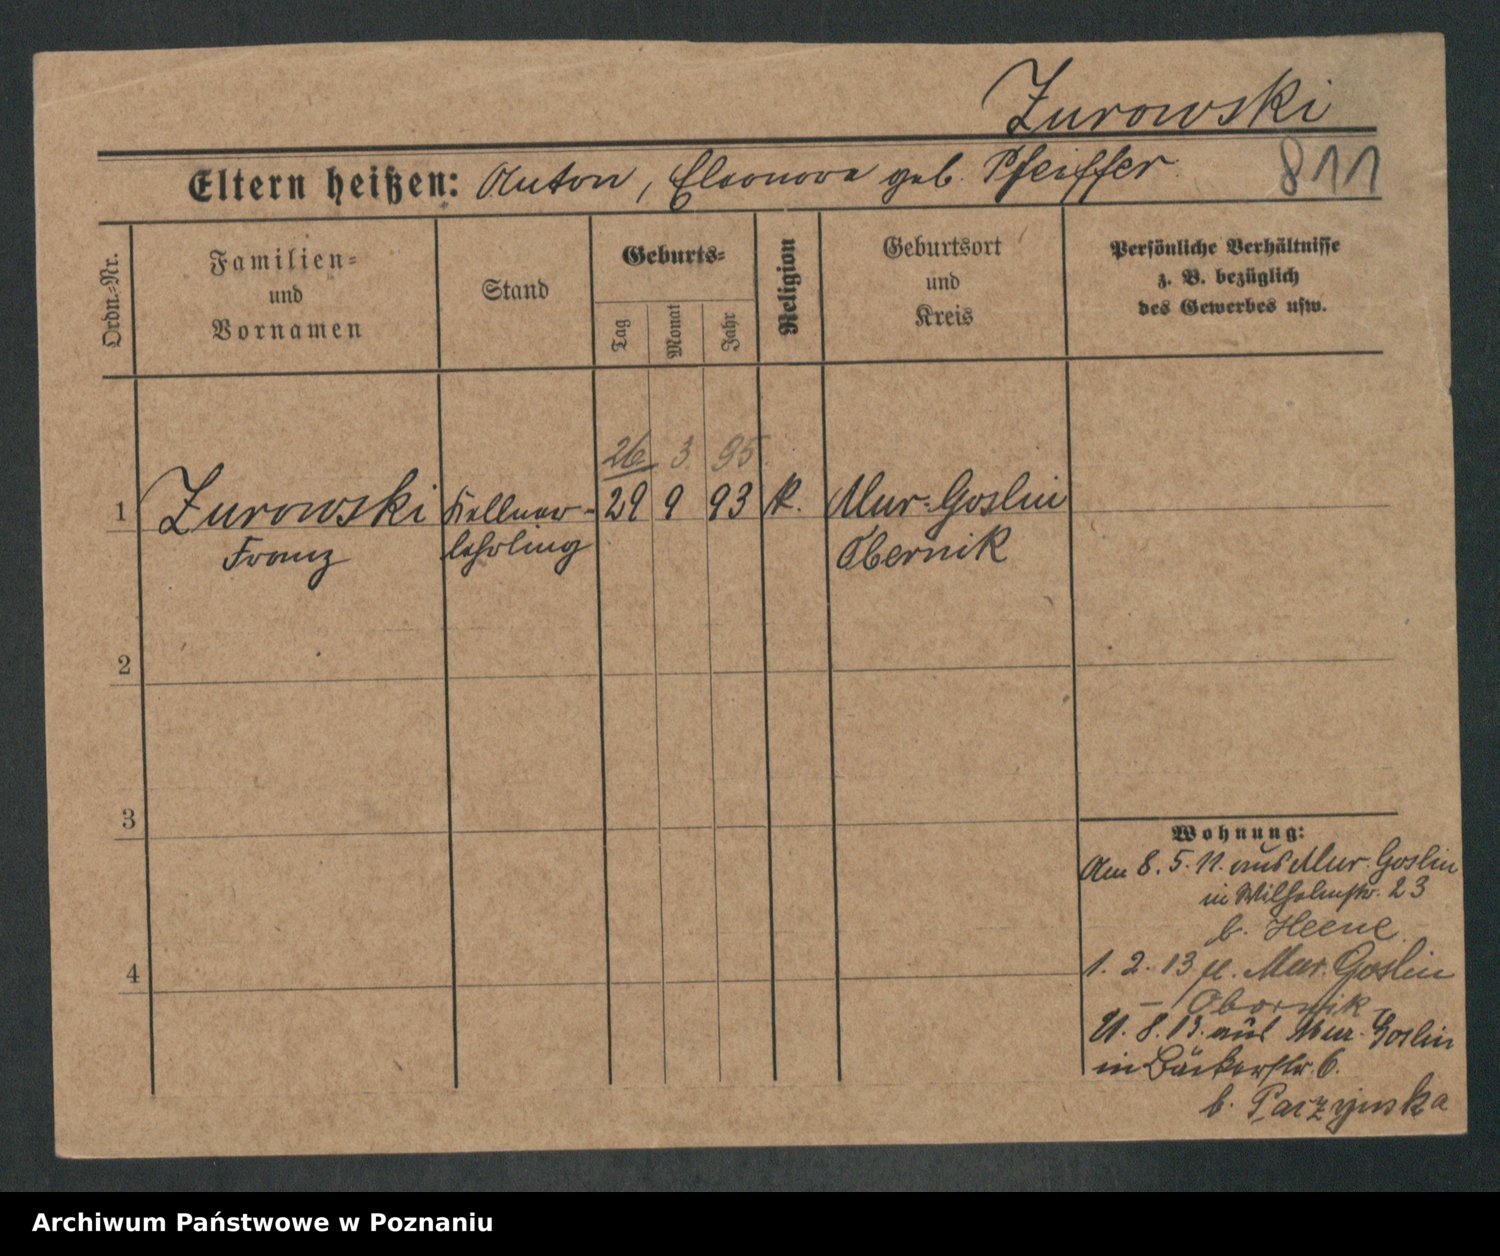 Zurowski
Eltern heißen: Anton, Eleonora geb. Pfeiffer
811
Ordn.-Nr.
Familien-
und
Vornamen
Stand
Geburts-
Tag
Monat
Jahr
Religion
Geburtsort
und
Kreis
Persönliche Verhältnisse
z. B. bezüglich
des Gewerbes usw.
26 3 95
1 Zurowski Kellner- 29 9 93 k. Mur-Goslin
Franz lehrling Obernik
2
3
4
Wohnung:
Am 8. 5. 11. aus Mur. Goslin
in Wilhelmstr. 23
b. Heene
1. 2. 13 n. Mur. Goslin
– Obornik –
21. 8. 13. aus Mur. Goslin
in Bäckerstr. 6.
b. Parzynska
Archiwum Państwowe w Poznaniu